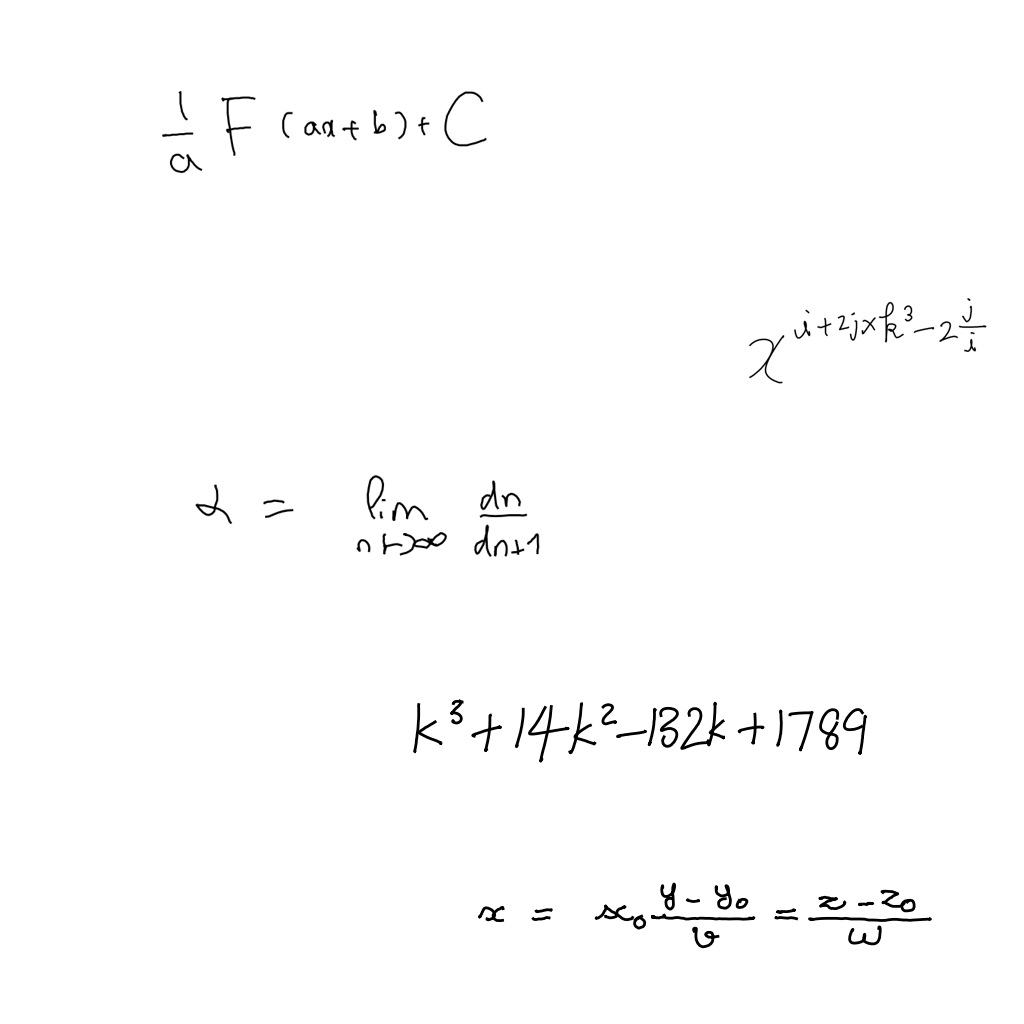 \frac{1}{a} F(ax+b)+C
x^{i+2j \times k^3-2\frac{j}{i}}
\alpha = \lim_{n \mapsto \infty} \frac{dn}{dn+1}
k^3+14k^2-132k+1789
x = x_0 \frac{y-y_0}{v} = \frac{z-z_0}{w}